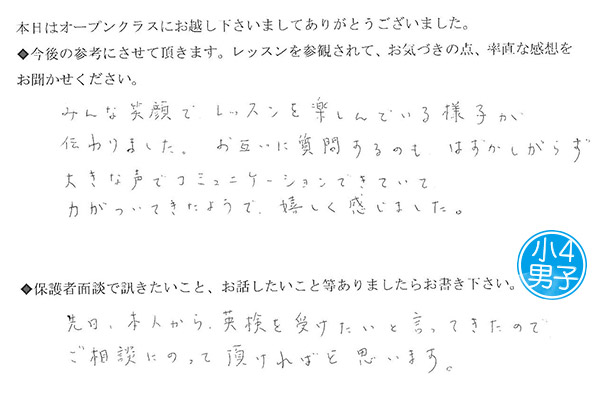 本日はオープンクラスにお越し下さいましてありがとうございました。
◆今後の参考にさせて頂きます。レッスンを参観されて、お気づきの点、率直な感想を
お聞かせください。
みんな笑顔で レッスンを楽しんでいる様子が
伝わりました。 お互いに質問するのも はずかしがらず
大きな声でコミュニケーションできていて
力がついてきたようで、嬉しく感じました。
小4
男子
◆保護者面談で訊きたいこと、お話したいこと等ありましたらお書き下さい。
先日、本人から、英検を受けたいと言ってきたので
ご相談にのって頂ければと思います。